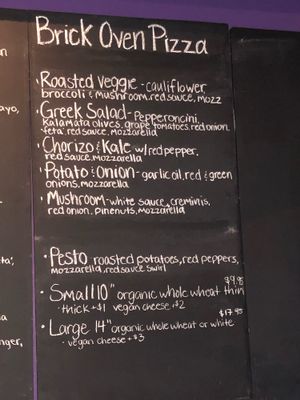 Brick Oven Pizza
· Roasted Veggie - cauliflower,
broccoli & mushroom, red sauce, mozz
· Greek Salad - Pepperoncini,
kalamata olives, grape tomatoes, red onion,
feta, red sauce, mozzarella
· Chorizo & Kale w/ red pepper,
red sauce, mozzarella
· Potato & Onion - garlic oil, red & green
onions, mozzarella
· Mushroom - white sauce, creminis,
red onion, pinenuts, mozzarella
· Pesto roasted potatoes, red peppers,
mozzarella, red sauce swirl
$9.95
· Small 10" organic whole wheat thin
· thick +$1 vegan cheese +$2
$17.45
· Large 14" organic whole wheat or white
· vegan cheese +$3
ayo,
nger,